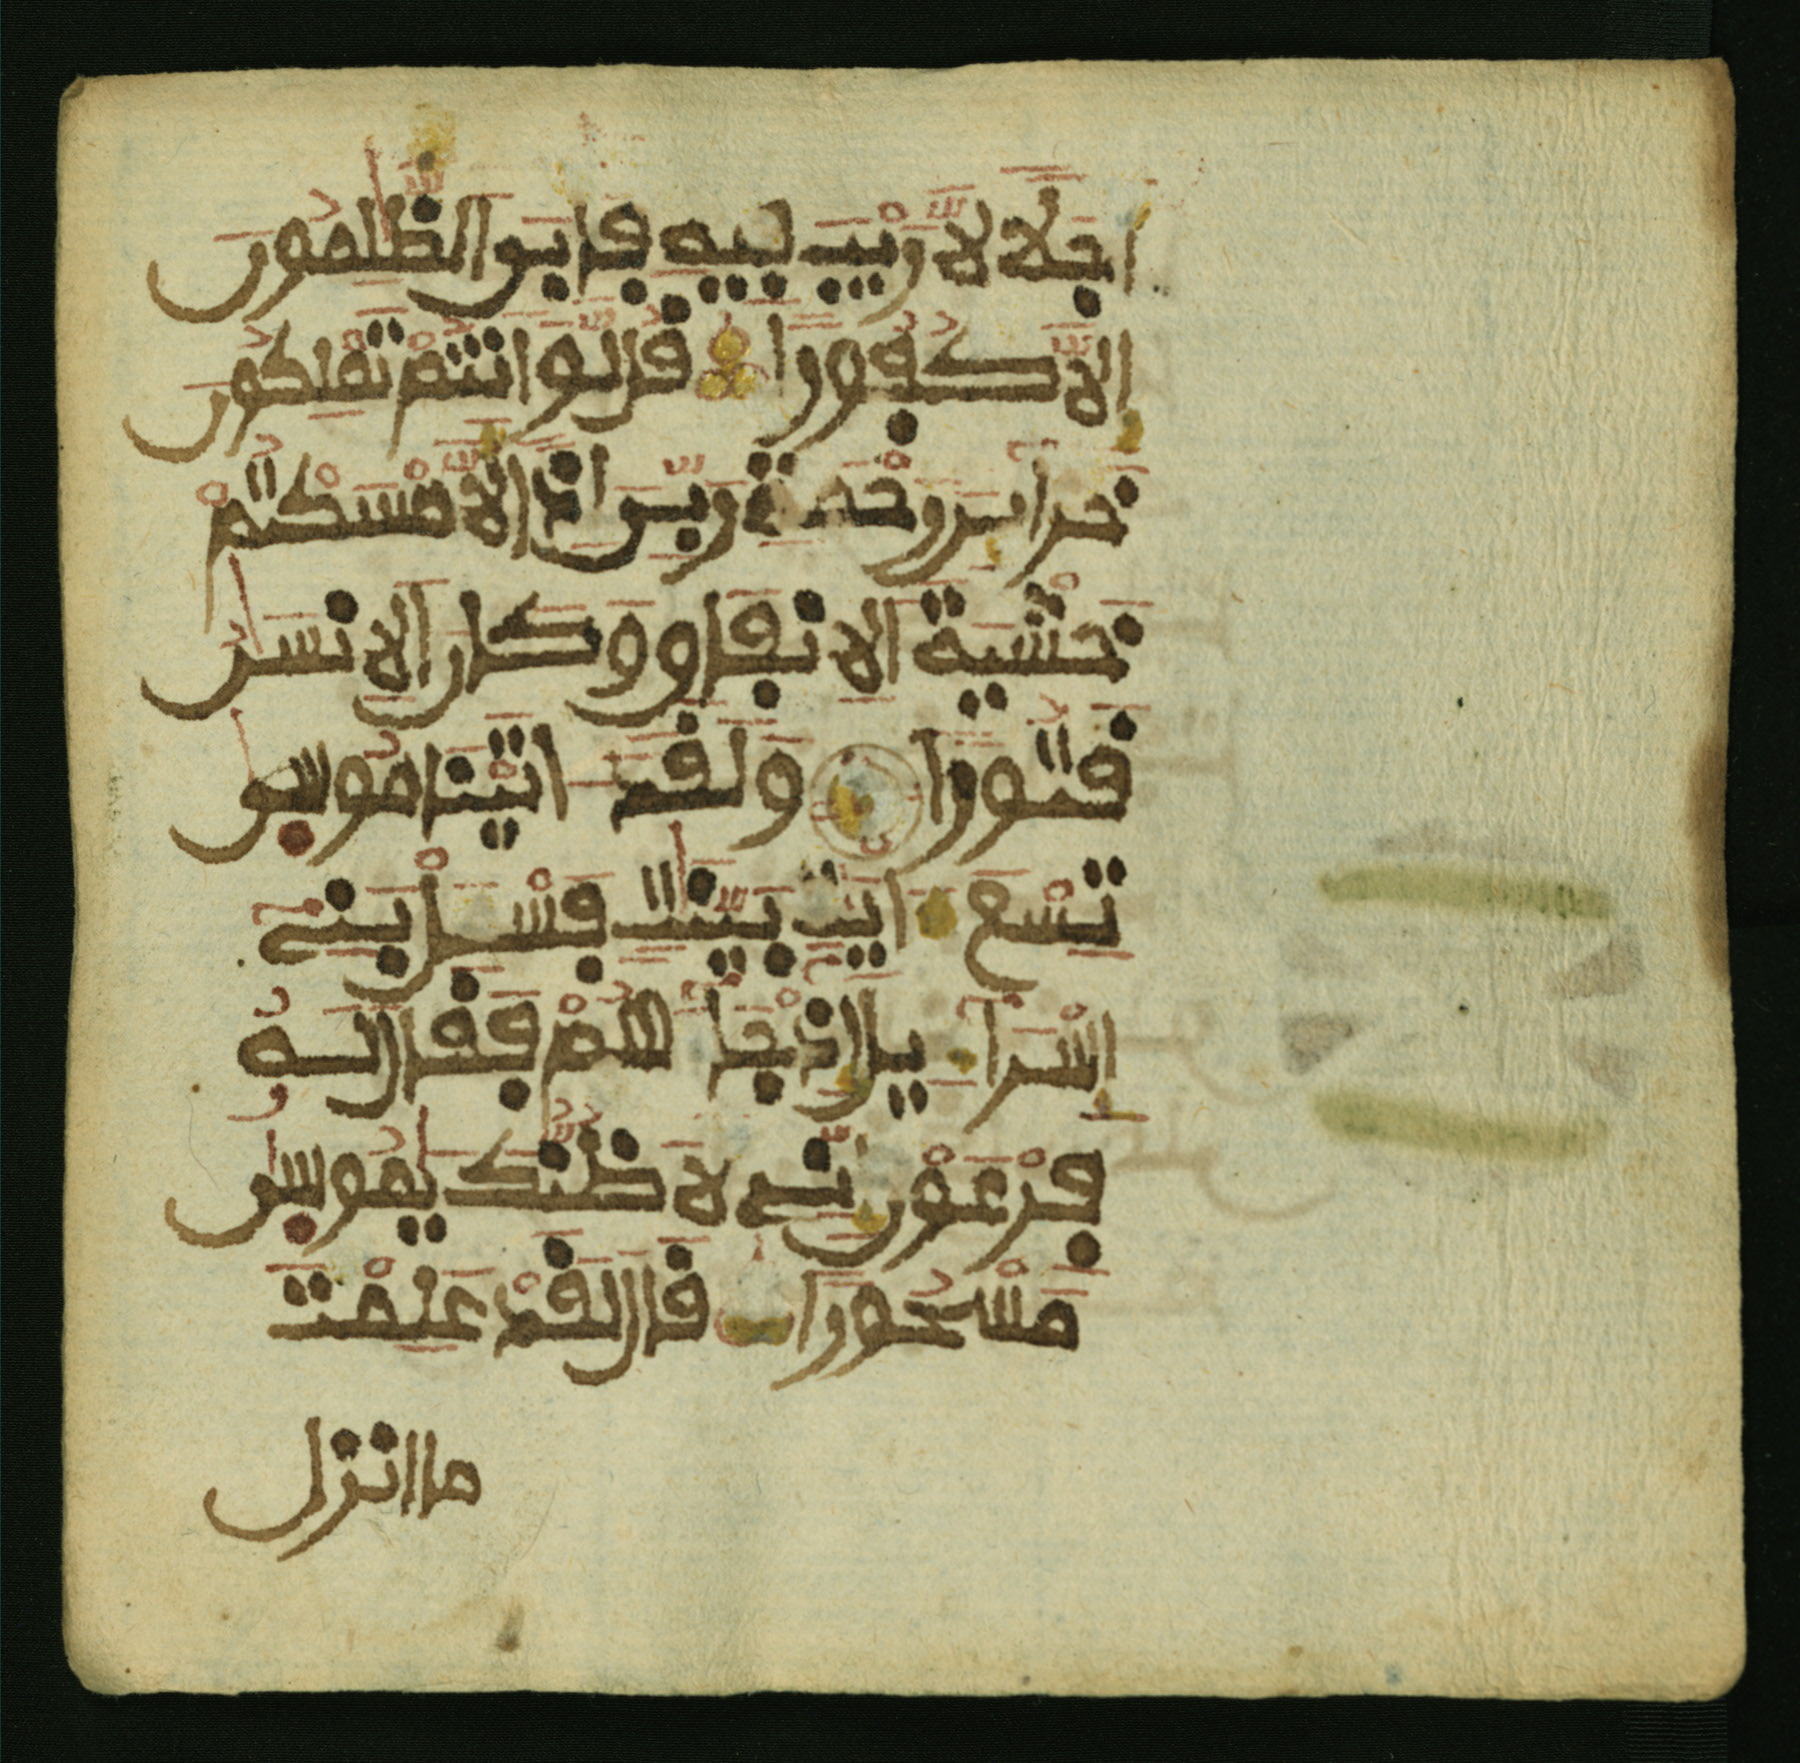 اجلا لا ريب فيه فابى الظلمون
الا كفورا قل لو انتم تملكون
خزاين رحمة ربى اذا لامسكتم
خشية الانفاق وكان الانسن
قتورا ولقد اتينا موسى
تسع ايت بينت فسل بنى
اسرايل اذ جاهم فقال له
فرعون انى لاظنك يموسى
مسحورا قال لقد علمت
ما انزل